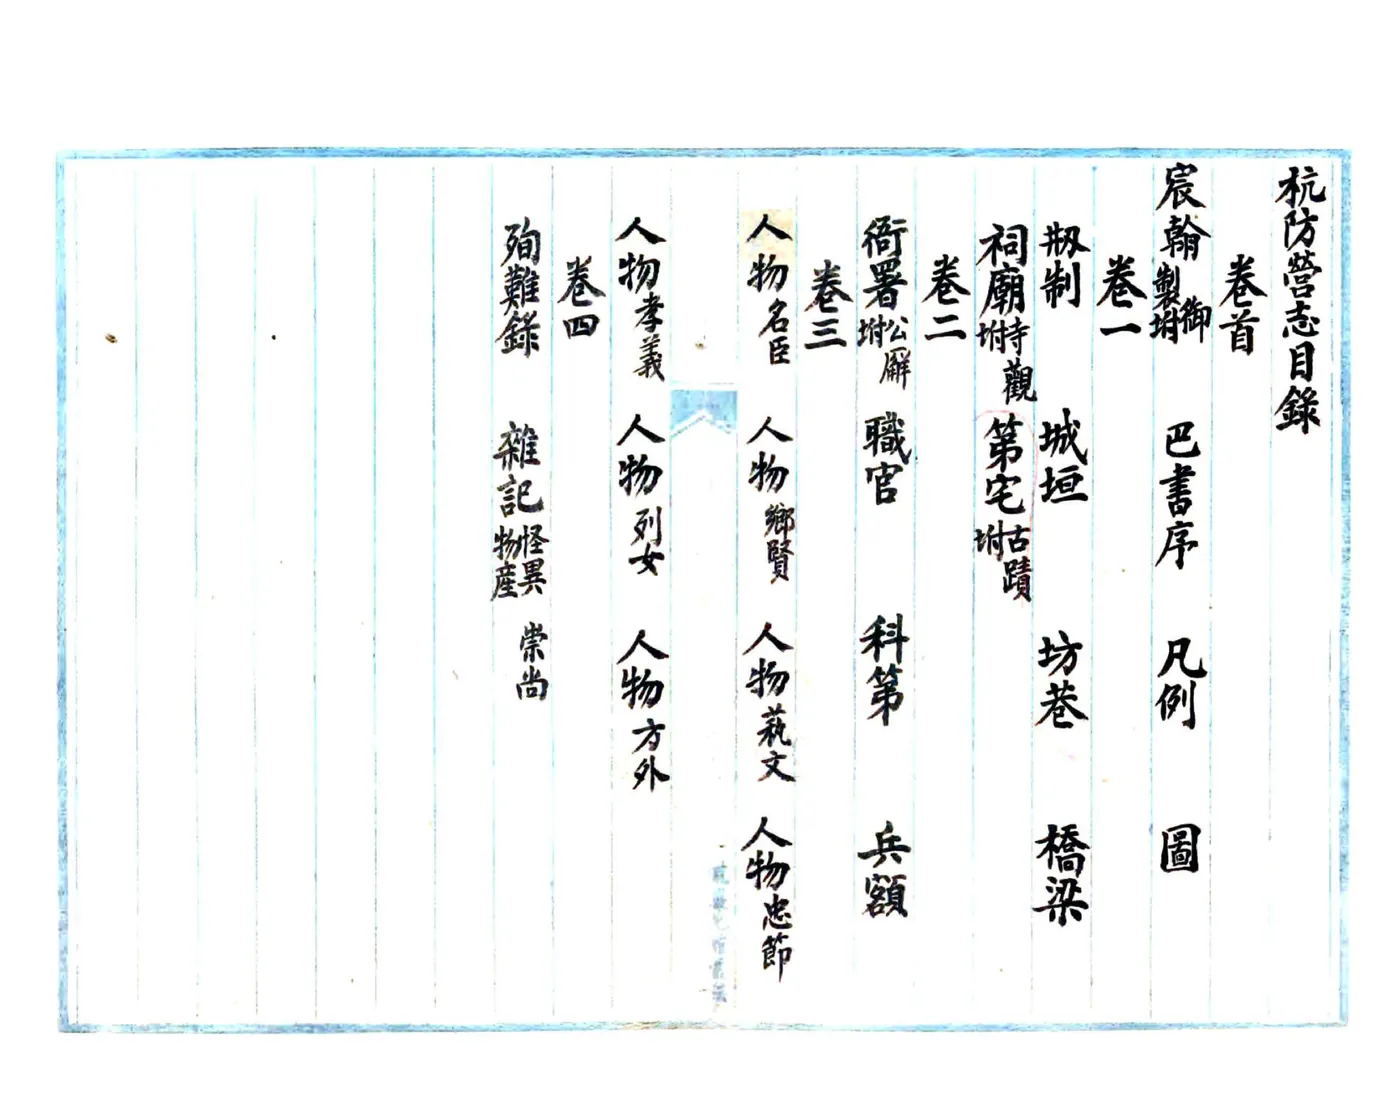 杭防營志目錄
卷首
宸翰 御製附 巴書序 凡例 圖
卷一
剏制 城垣 坊巷 橋梁
祠廟 寺觀附 第宅 古蹟附
卷二
衙署 公廨附 職官 科第 兵額
卷三
人物 名臣 人物 鄉賢 人物 藝文 人物 忠節
人物 孝義 人物 列女 人物 方外
卷四
殉難錄 雜記 怪異物產 崇尚